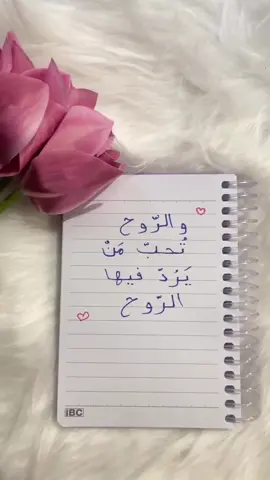 والرّوح
تُحبّ مَنْ
يَرُدّ فيها
الرّوح
iBC